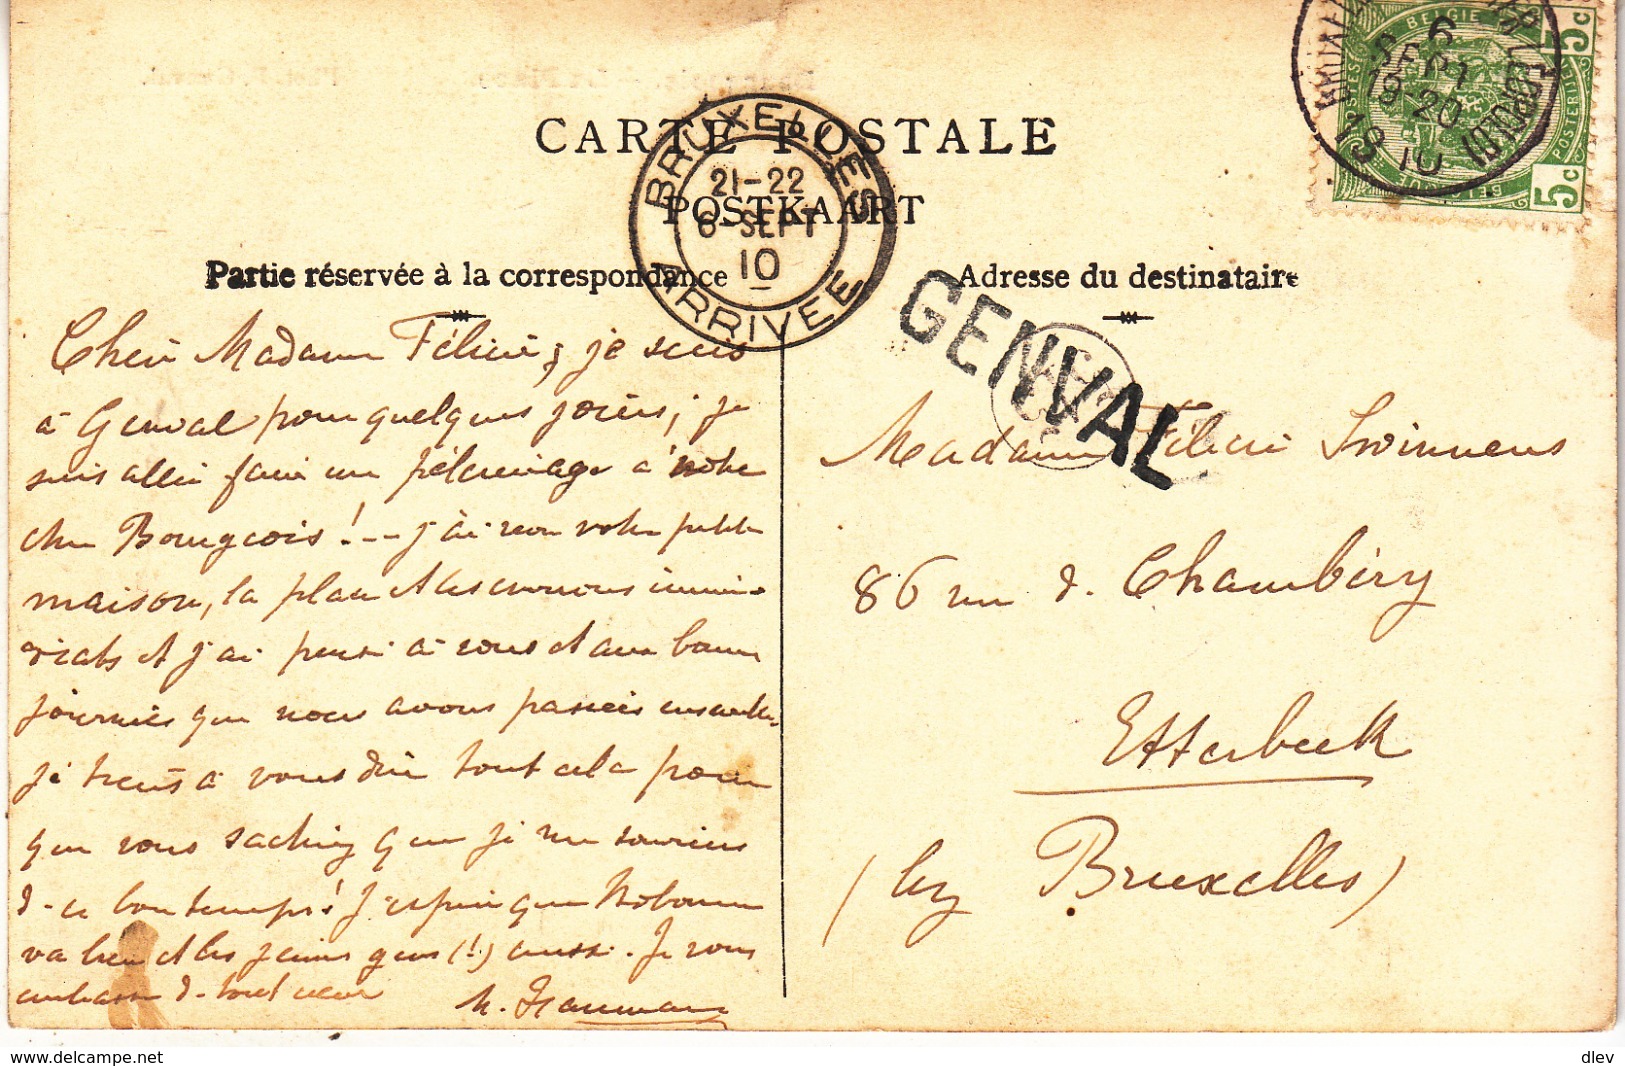 CARTE POSTALE
POSTKAART
Partie réservée à la correspondance
Adresse du destinataire
BRUXELLES
21-22
6-SEPT
10
ARRIVEE
GENVAL
BELGIE
5c
5c
6
SEPT
19-20
1910
Chère Madame Félicie, je suis
à Genval pour quelques jours; je
suis allée faire un pélerinage à notre
cher Bourgeois!-- j'ai revu votre petite
maison, la place et les environs immé-
diats et j'ai pensé à vous et aux bonnes
journées que nous avons passées ensemble.
je tiens à vous dire tout cela pour
que vous sachiez que je me souviens
de ce bon temps! J'espère que
va bien et les jeunes gens (!) aussi. Je vous
embrasse de tout cœur
Madame Félicie Swinnens
86 rue de Chambéry
Etterbeek
(lez Bruxelles)
delcampe.net
dlev